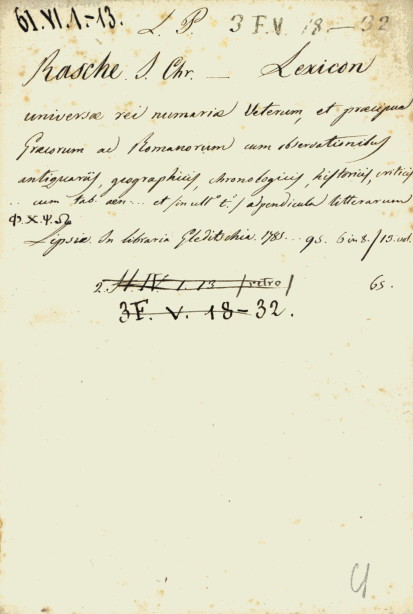 61.VI.1.-13. L. P. 3 F.V. 18.-32
Rasche J. Chr. — Lexicon
universæ rei numariæ Veterum, et præcipua
Græcorum ac Romanorum cum observationibus
antiquariis, geographicis, chronologicis, historicis, criticis
.. cum tab. aen... et /in ult.° t.°/ appendicula litterarum
Φ.Χ.Ψ.Ω
Lipsiæ. In libraria Gleditschia. 1785... 95. 6 in 8./13.vol.
2. H. IV. 1. 13 /retro/ 65.
3F. V. 18-32.